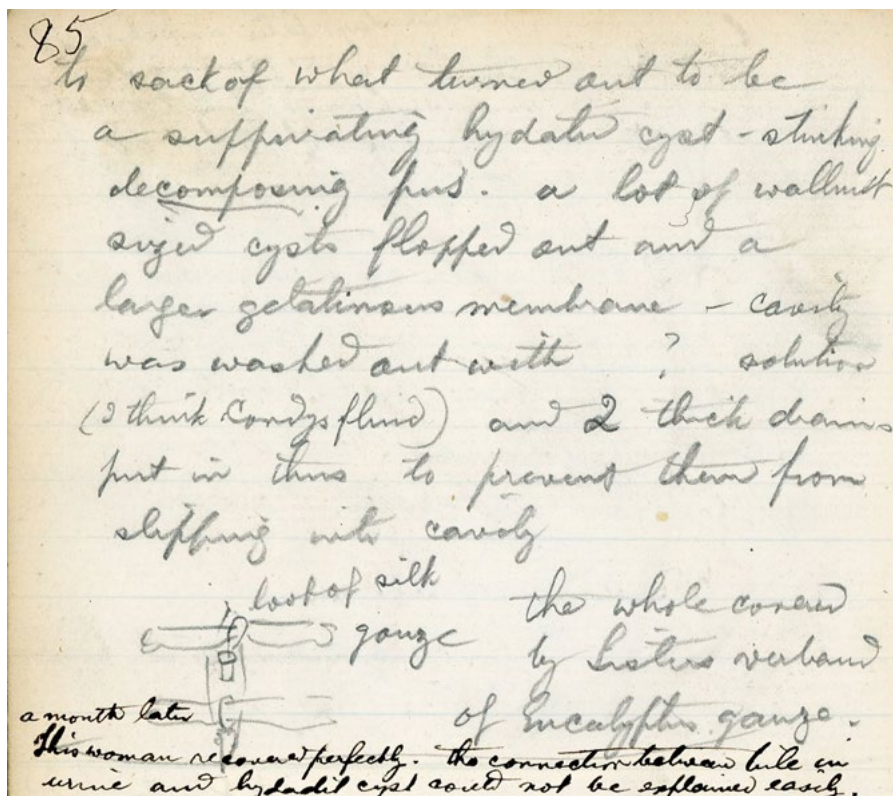 85
to sack of what turned out to be
a suppurating hydatid cyst - stinking
decomposing pus. a lot of wallnut
sized cysts flopped out and a
large gelatinous membrane - cavity
was washed out with ? solution
(I think Condys fluid) and 2 thick drains
put in thus to prevent them from
slipping into cavity
loop of silk
gauze
the whole covered
by Listers verband
of Eucalyptus gauze.
a month later
This woman recovered perfectly. the connection between bile in
urine and hydadit cyst could not be explained easily.